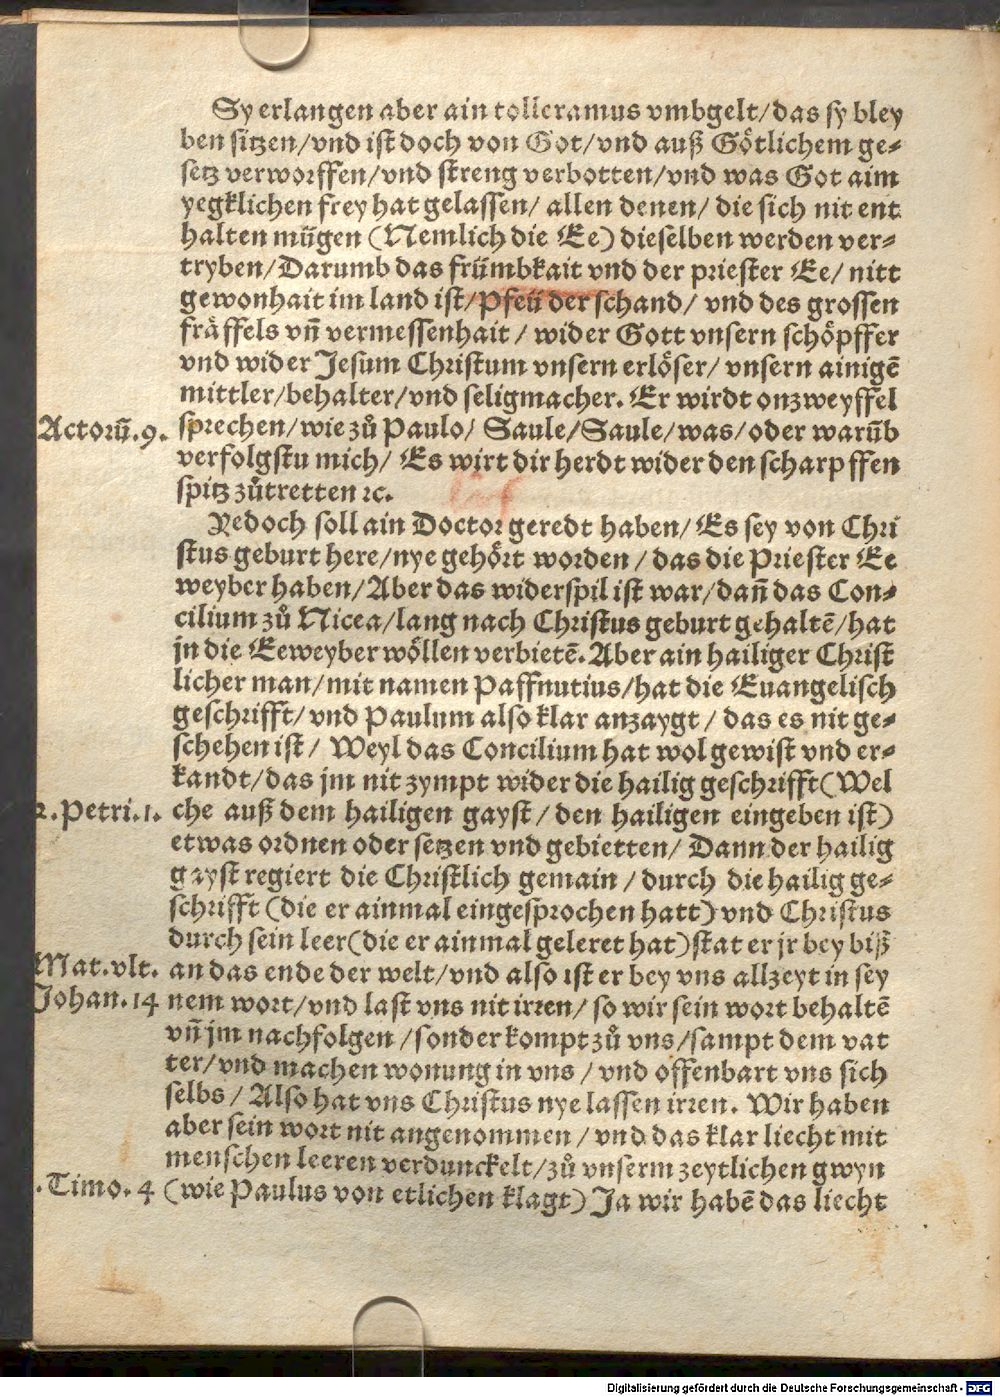 Sy erlangen aber ain tolleramus vmbgelt/das sy bley
ben sitzen/vnd ist doch von Got/vnd auß Götlichem ge⸗
setz verworffen/vnd streng verbotten/vnd was Got aim
yegklichen frey hat gelassen/ allen denen/ die sich nit ent
halten mügen (Nemlich die Ee) dieselben werden ver⸗
tryben/Darumb das frümbkait vnd der priester Ee/ nitt
gewonhait im land ist/Pfeü der schand/ vnd des grossen
fräffels vñ vermessenhait / wider Gott vnsern schöpffer
vnd wider Jesum Christum vnsern erlöser/ vnsern ainigē
mittler/behalter/vnd seligmacher. Er wirdt onzweyffel
Actorū.9. sprechen/wie zů Paulo/ Saule/Saule/was/oder warūb
verfolgstu mich/ Es wirt dir herdt wider den scharpffen
spitz zůtretten ꝛc.
Yedoch soll ain Doctor geredt haben/ Es sey von Chri
stus geburt here/nye gehört worden / das die Priester Ee
weyber haben/Aber das widerspil ist war/dañ das Con⸗
cilium zů Nicea/lang nach Christus geburt gehaltē/hat
jn die Eeweyber wöllen verbietē. Aber ain hailiger Christ
licher man/mit namen Paffnutius/hat die Euangelisch
geschrifft/ vnd Paulum also klar anzaygt / das es nit ge⸗
schehen ist / Weyl das Concilium hat wol gewist vnd er⸗
kandt/das jm nit zympt wider die hailig geschrifft (Wel
2.Petri.1. che auß dem hailigen gayst / den hailigen eingeben ist)
etwas ordnen oder setzen vnd gebietten/ Dann der hailig
gayst regiert die Christlich gemain / durch die hailig ge⸗
schrifft (die er ainmal eingesprochen hatt) vnd Christus
durch sein leer(die er ainmal geleret hat)stat er jr bey biß
Mat.vlt. an das ende der welt/vnd also ist er bey vns allzeyt in sey
Johan.14 nem wort/vnd last vns nit irren/ so wir sein wort behaltē
vñ jm nachfolgen /sonder kompt zů vns/sampt dem vat
ter/vnd machen wonung in vns / vnd offenbart vns sich
selbs / Also hat vns Christus nye lassen irren. Wir haben
aber sein wort nit angenommen / vnd das klar liecht mit
menschen leeren verdunckelt/zů vnserm zeytlichen gwyn
.Timo.4 (wie Paulus von etlichen klagt) Ja wir habē das liecht
Digitalisierung gefördert durch die Deutsche Forschungsgemeinschaft - DFG